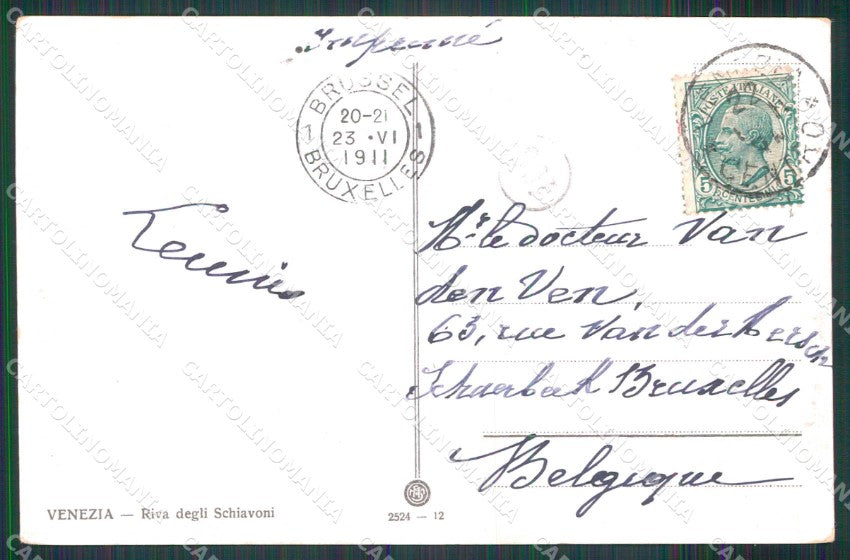 Imprimé
BRUSSEL
1 1
20-21
23 · VI
1911
BRUXELLES
POSTE ITALIANE
5 5
CENTESIMI
Mr le docteur Van
den Ven,
63, rue Van der Mersch
Schaerbeek Bruxelles
Belgique
VENEZIA — Riva degli Schiavoni
2524 — 12
CARTOLINOMANIA